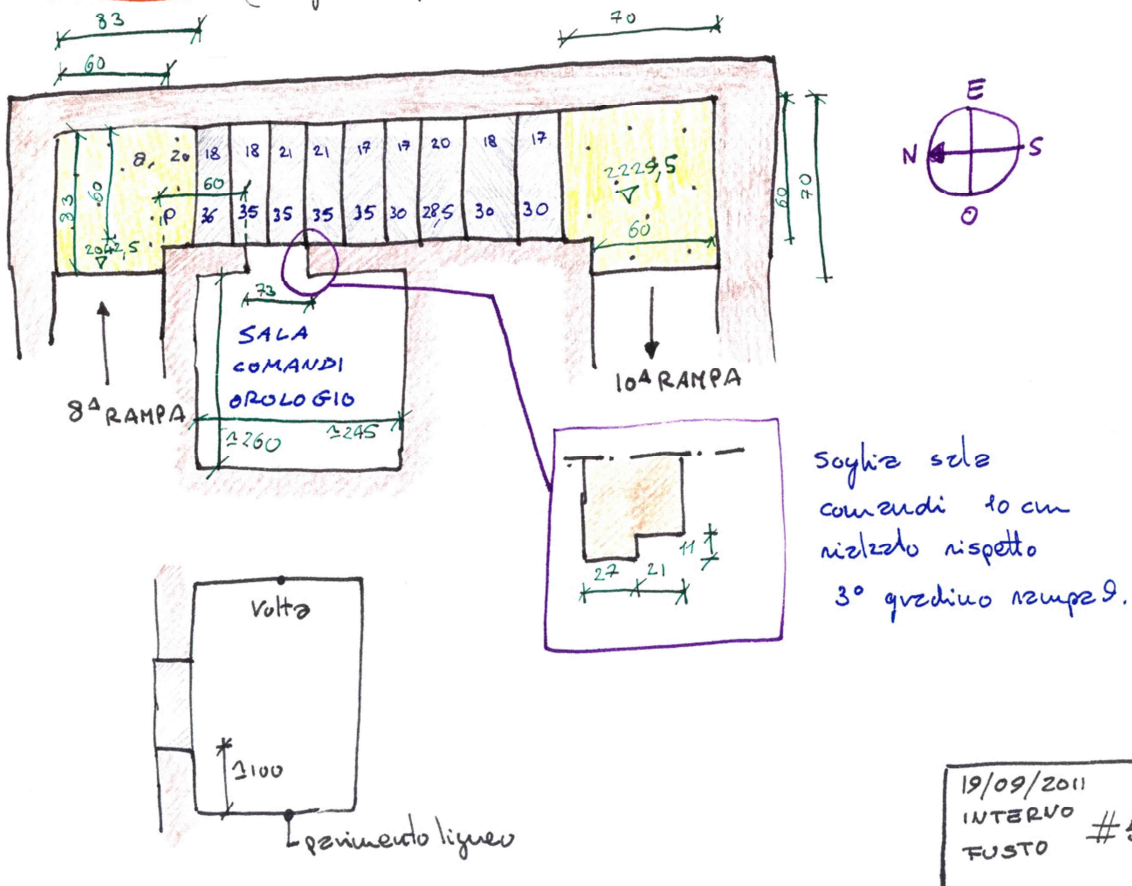 83
70
60
E
N S
O
a, 20 18 18 21 21 17 17 20 18 17
60
60
33
2229,5
60
70
P 36 35 35 35 35 30 28,5 30 30
60
2042,5
73
SALA
COMANDI
OROLOGIO
8ª RAMPA
10ª RAMPA
≃260 ≃245
Soglia sala
comandi 10 cm
rialzato rispetto
3° gradino rampa 9.
11
27 21
Volta
≃100
pavimento ligneo
19/09/2011
INTERNO
FUSTO #